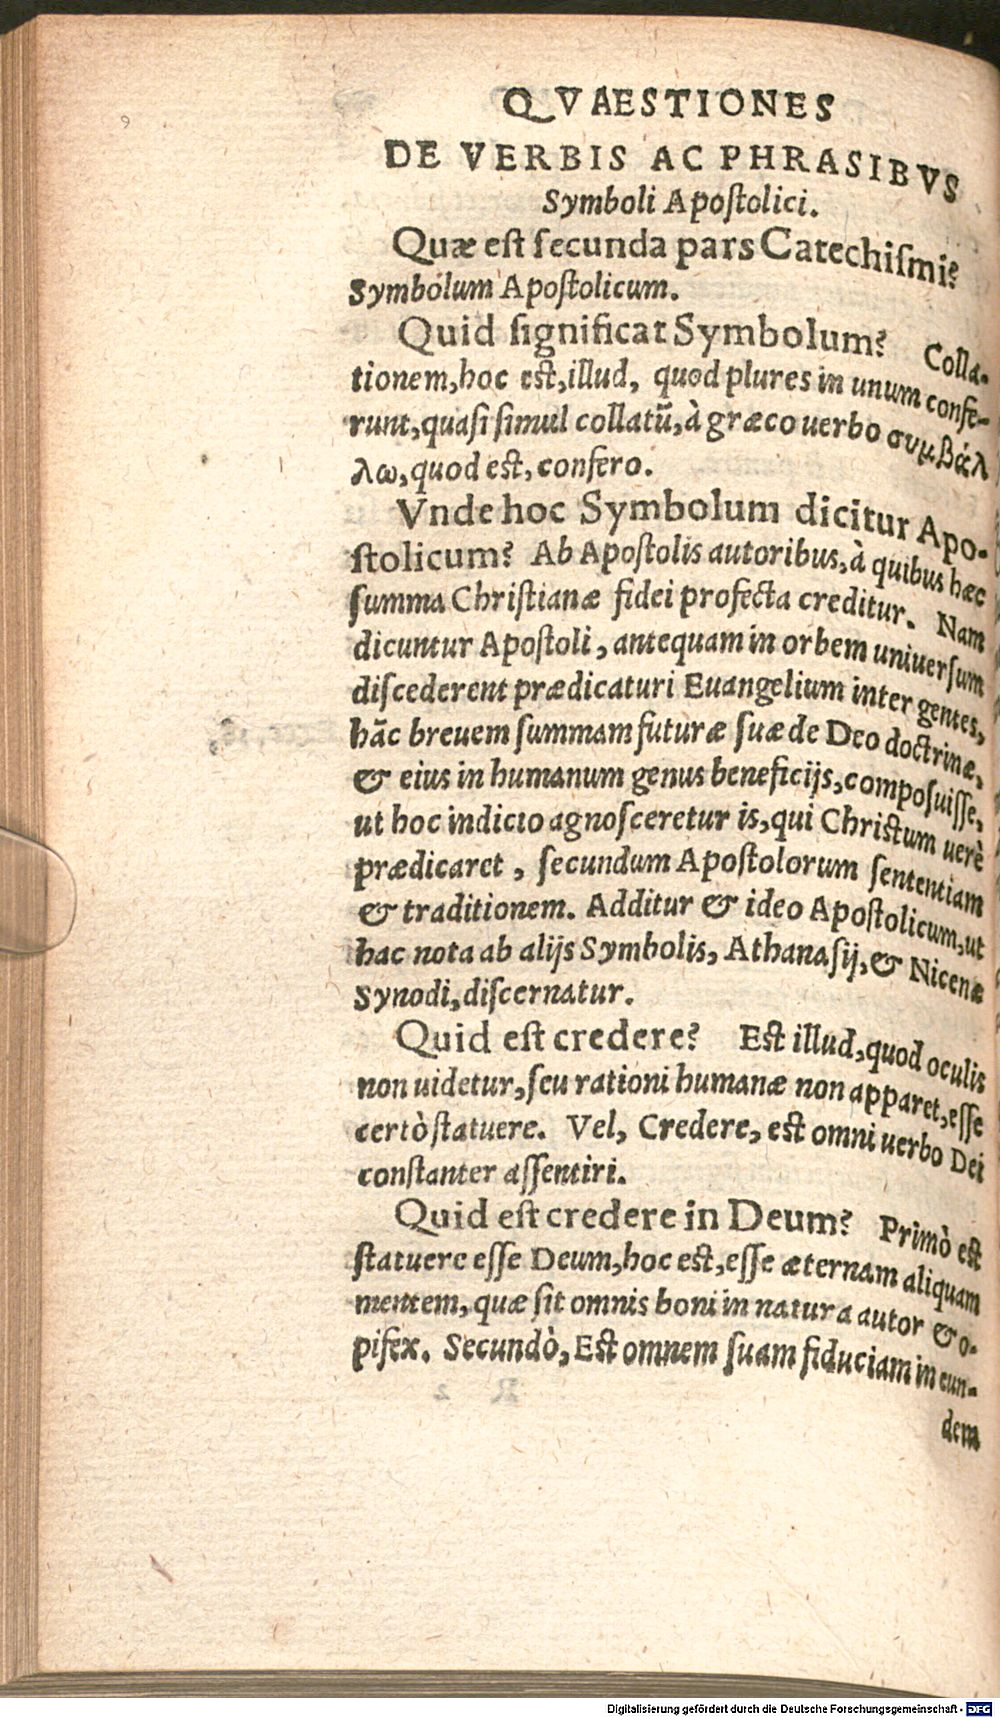 QVAESTIONES
DE VERBIS AC PHRASIBVS
Symboli Apoſtolici.
Quæ eſt ſecunda pars Catechiſmi?
Symbolum Apoſtolicum.
Quid ſignificat Symbolum? Colla-
tionem, hoc eſt, illud, quod plures in unum confe-
runt, quaſi ſimul collatū, à græco uerbo συμβάλ
λω, quod eſt, confero.
Vnde hoc Symbolum dicitur Apo-
ſtolicum? Ab Apoſtolis autoribus, à quibus hæc
ſumma Chriſtianæ fidei profecta creditur. Nam
dicuntur Apoſtoli, antequam in orbem uniuerſum
diſcederent prædicaturi Euangelium inter gentes,
hāc breuem ſummam futuræ ſuæ de Deo doctrinæ,
& eius in humanum genus beneficijs, compoſuiſſe,
ut hoc indicio agnoſceretur is, qui Chriſtum uerè
prædicaret, ſecundum Apoſtolorum ſententiam
& traditionem. Additur & ideo Apoſtolicum, ut
hac nota ab alijs Symbolis, Athanaſij, & Nicenæ
Synodi, diſcernatur.
Quid eſt credere? Eſt illud, quod oculis
non uidetur, ſeu rationi humanæ non apparet, eſſe
certò ſtatuere. Vel, Credere, eſt omni uerbo Dei
conſtanter aſſentiri.
Quid eſt credere in Deum? Primò eſt
ſtatuere eſſe Deum, hoc eſt, eſſe æternam aliquam
mentem, quæ ſit omnis boni in natura autor & o-
pifex. Secundò, Eſt omnem ſuam fiduciam in eun-
dem
Digitalisierung gefördert durch die Deutsche Forschungsgemeinschaft - DFG